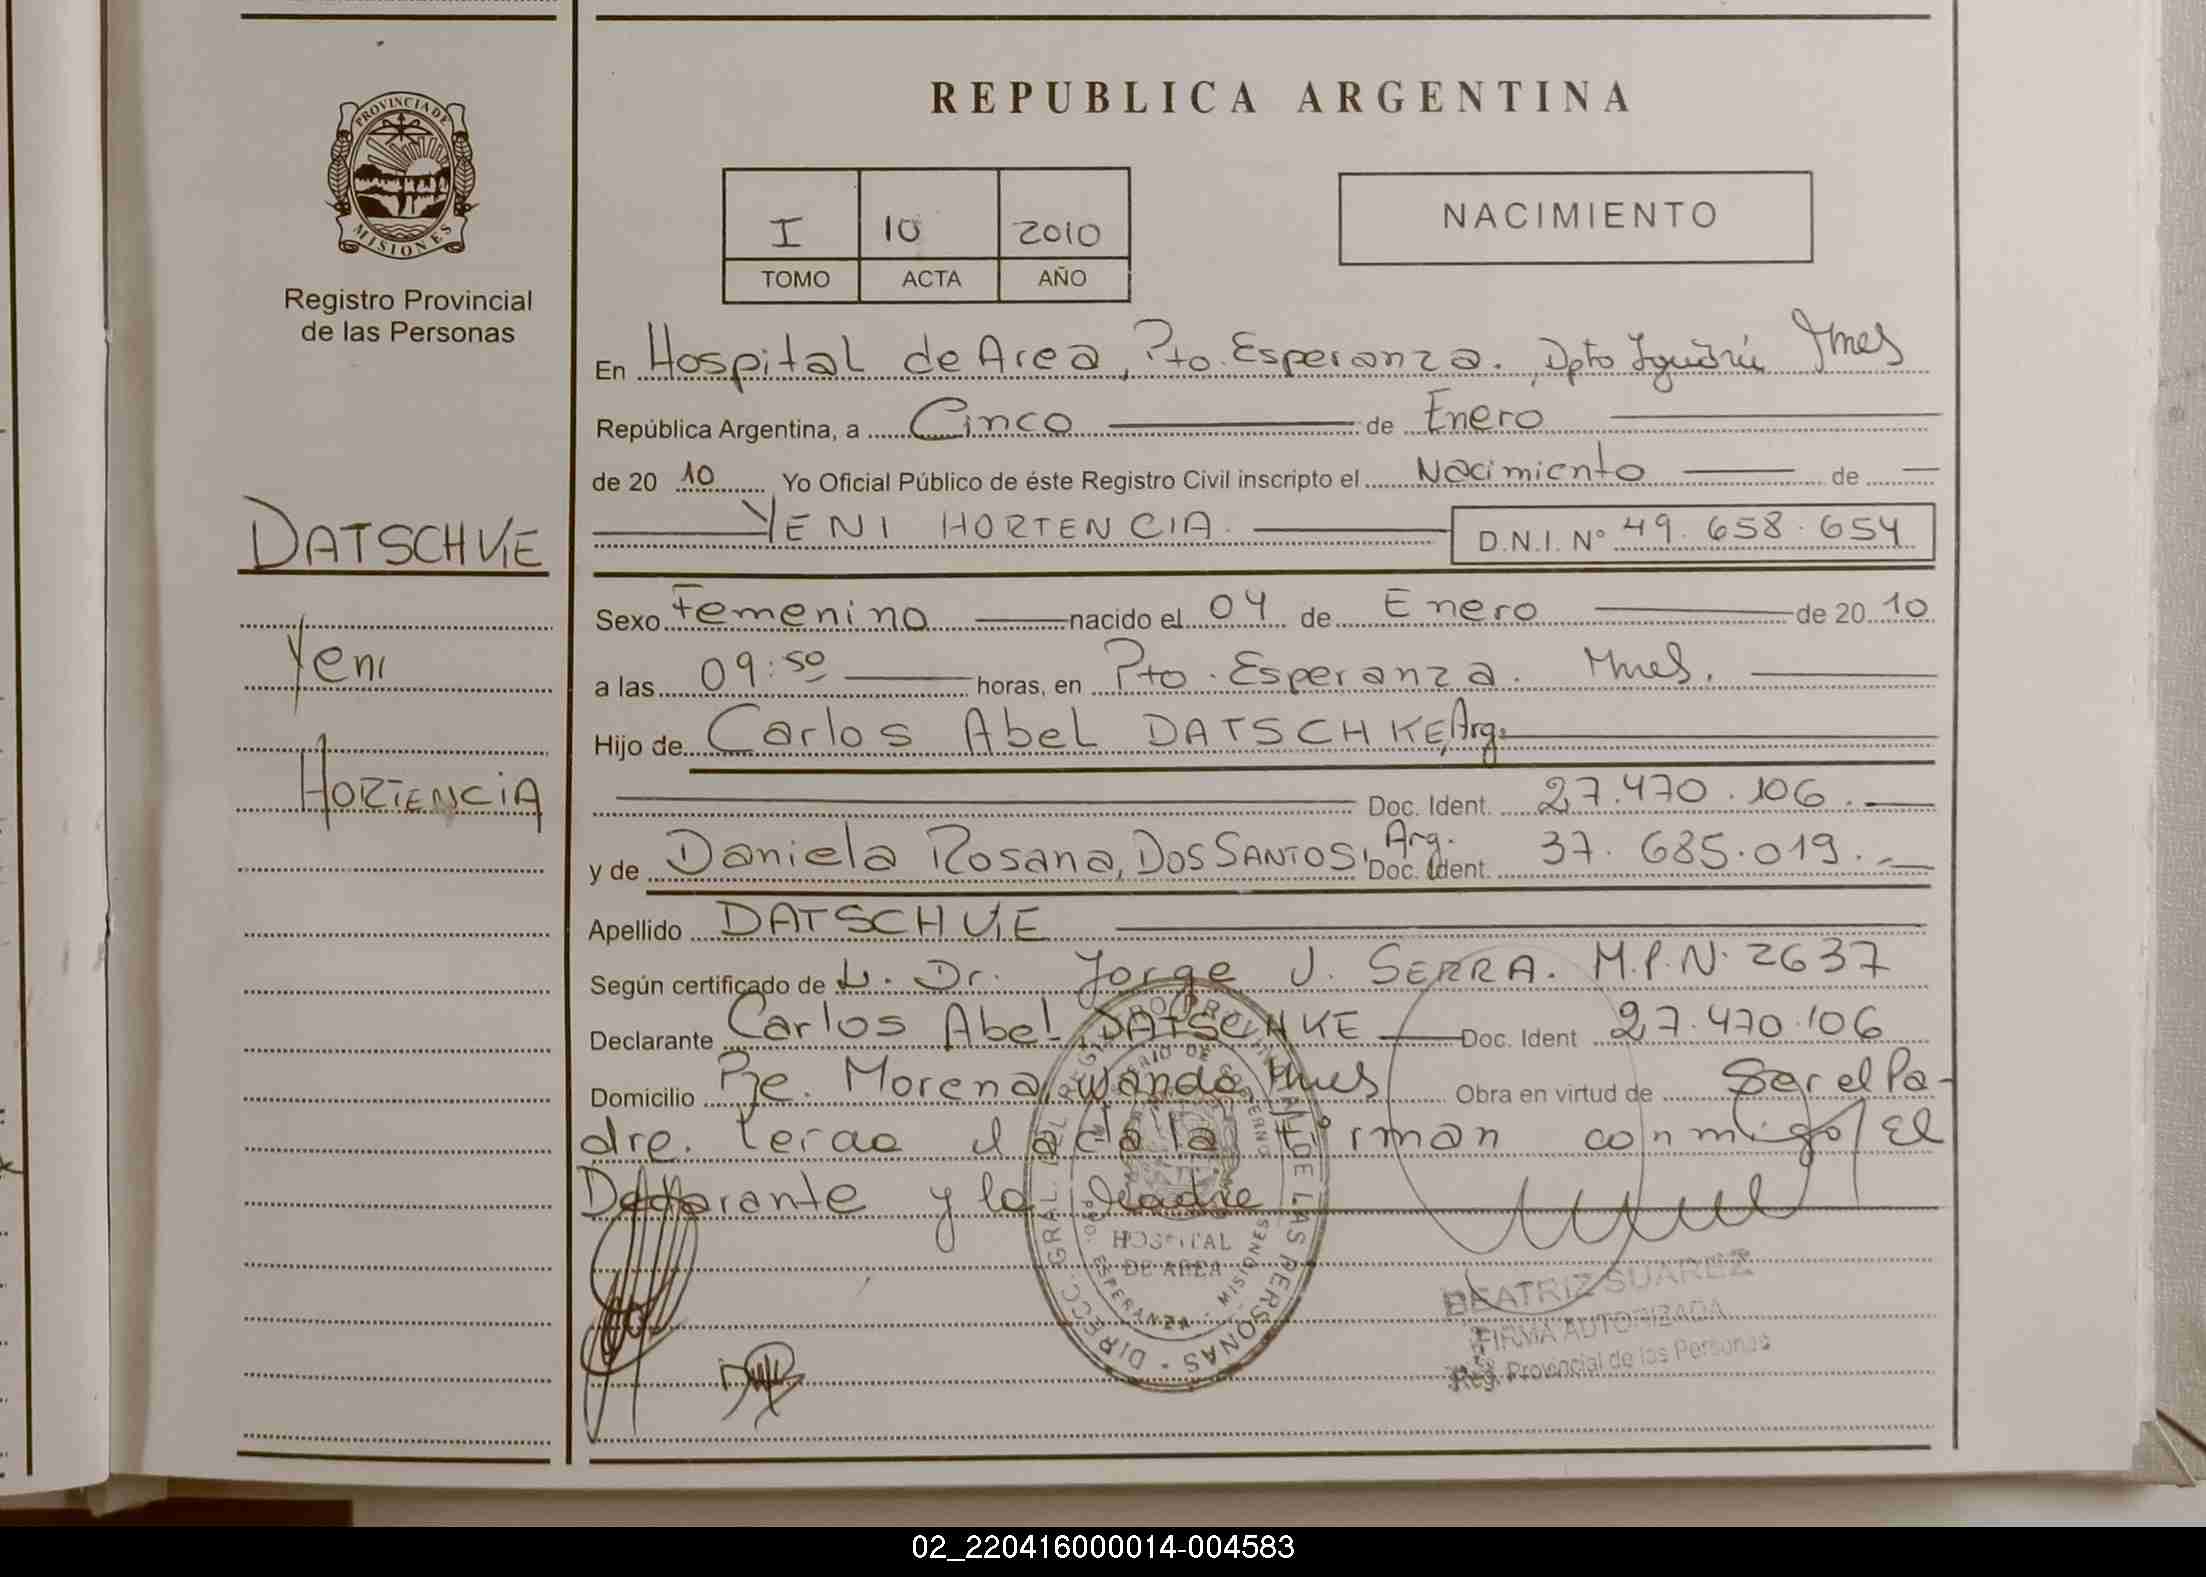 REPUBLICA ARGENTINA
PROVINCIA DE
MISIONES
Registro Provincial
de las Personas
I 10 2010
TOMO ACTA AÑO
NACIMIENTO
En Hospital de Area, Pto. Esperanza. Dpto Iguazú Mnes
República Argentina, a Cinco de Enero
de 2010 Yo Oficial Público de éste Registro Civil inscripto el Nacimiento de
YENI HORTENCIA. D.N.I. Nº 49.658.654
DATSCHKE
Yeni
HORTENCIA
Sexo Femenino nacido el 04 de Enero de 2010
a las 09:50 horas, en Pto. Esperanza. Mnes.
Hijo de Carlos Abel DATSCHKE, Arg.
Doc. Ident. 27.470.106.
y de Daniela Rosana, DOS SANTOS, Arg. Doc. Ident. 37.685.019.
Apellido DATSCHKE
Según certificado de Dr. Jorge J. SERRA. M.P.N. 2637
Declarante Carlos Abel DATSCHKE Doc. Ident 27.470.106
Domicilio Pje. Morena, Wanda, Mnes Obra en virtud de Ser el Pa-
dre. Leida el acta la firman conmigo, El
Declarante y la Madre
DIRECC. GRAL. DEL REGISTRO PROVINCIAL DE LAS PERSONAS
HOSPITAL
DE AREA
PTO. ESPERANZA - MISIONES
BEATRIZ SUAREZ
FIRMA AUTORIZADA
Reg. Provincial de las Personas
02_220416000014-004583